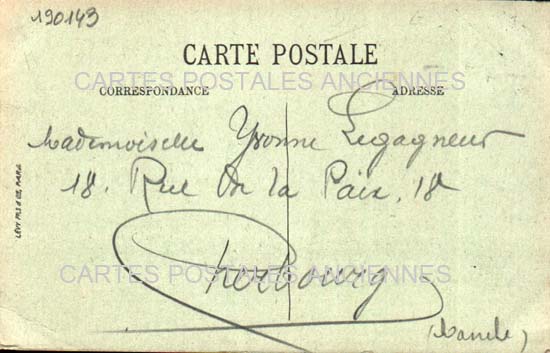 190143
CARTE POSTALE
CARTES POSTALES ANCIENNES
CORRESPONDANCE
ADRESSE
Mademoiselle Yvonne Legagneur
18. Rue De la Paix. 18
LÉVY FILS & CIE, PARIS
Cherbourg
CARTES POSTALES ANCIENNES
(Manche)